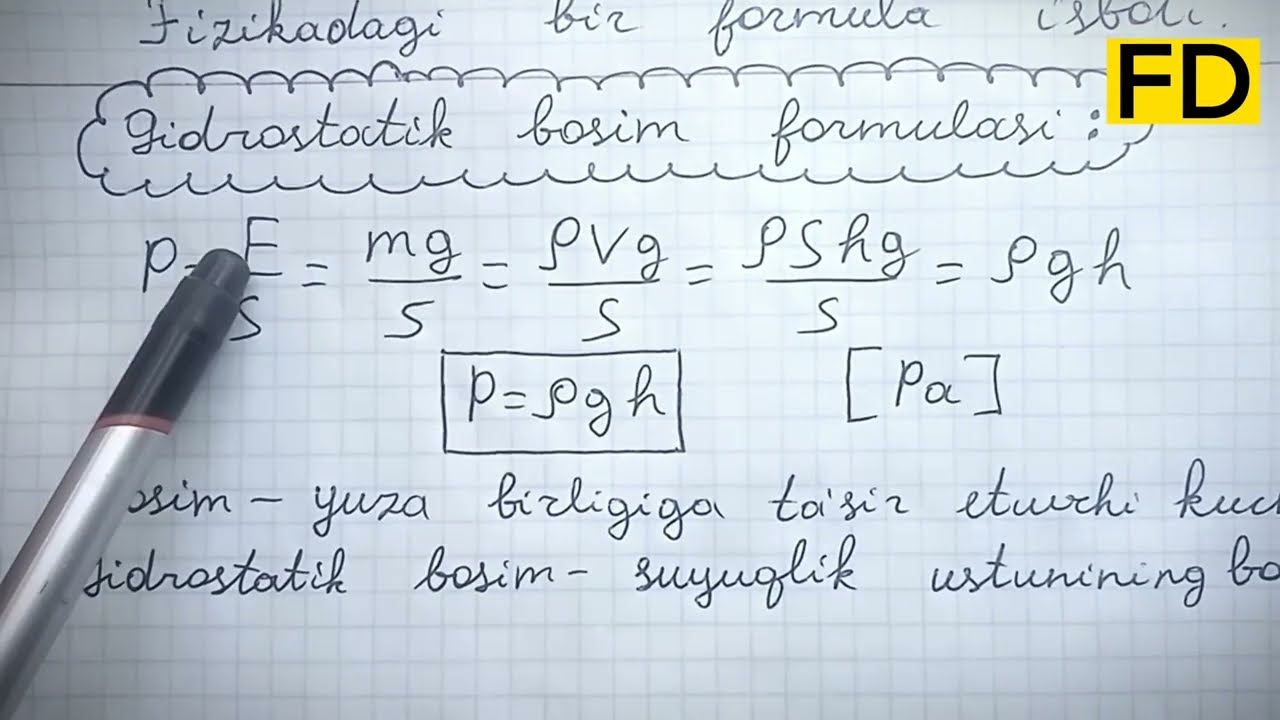 Fizikadagi bir formula isboti.
FD
Gidrostatik bosim formulasi:
P = F/S = mg/S = ρVg/S = ρShg/S = ρgh
P = ρgh [Pa]
osim - yuza birligiga ta'sir etuvchi kuc
gidrostatik bosim - suyuqlik ustunining bo